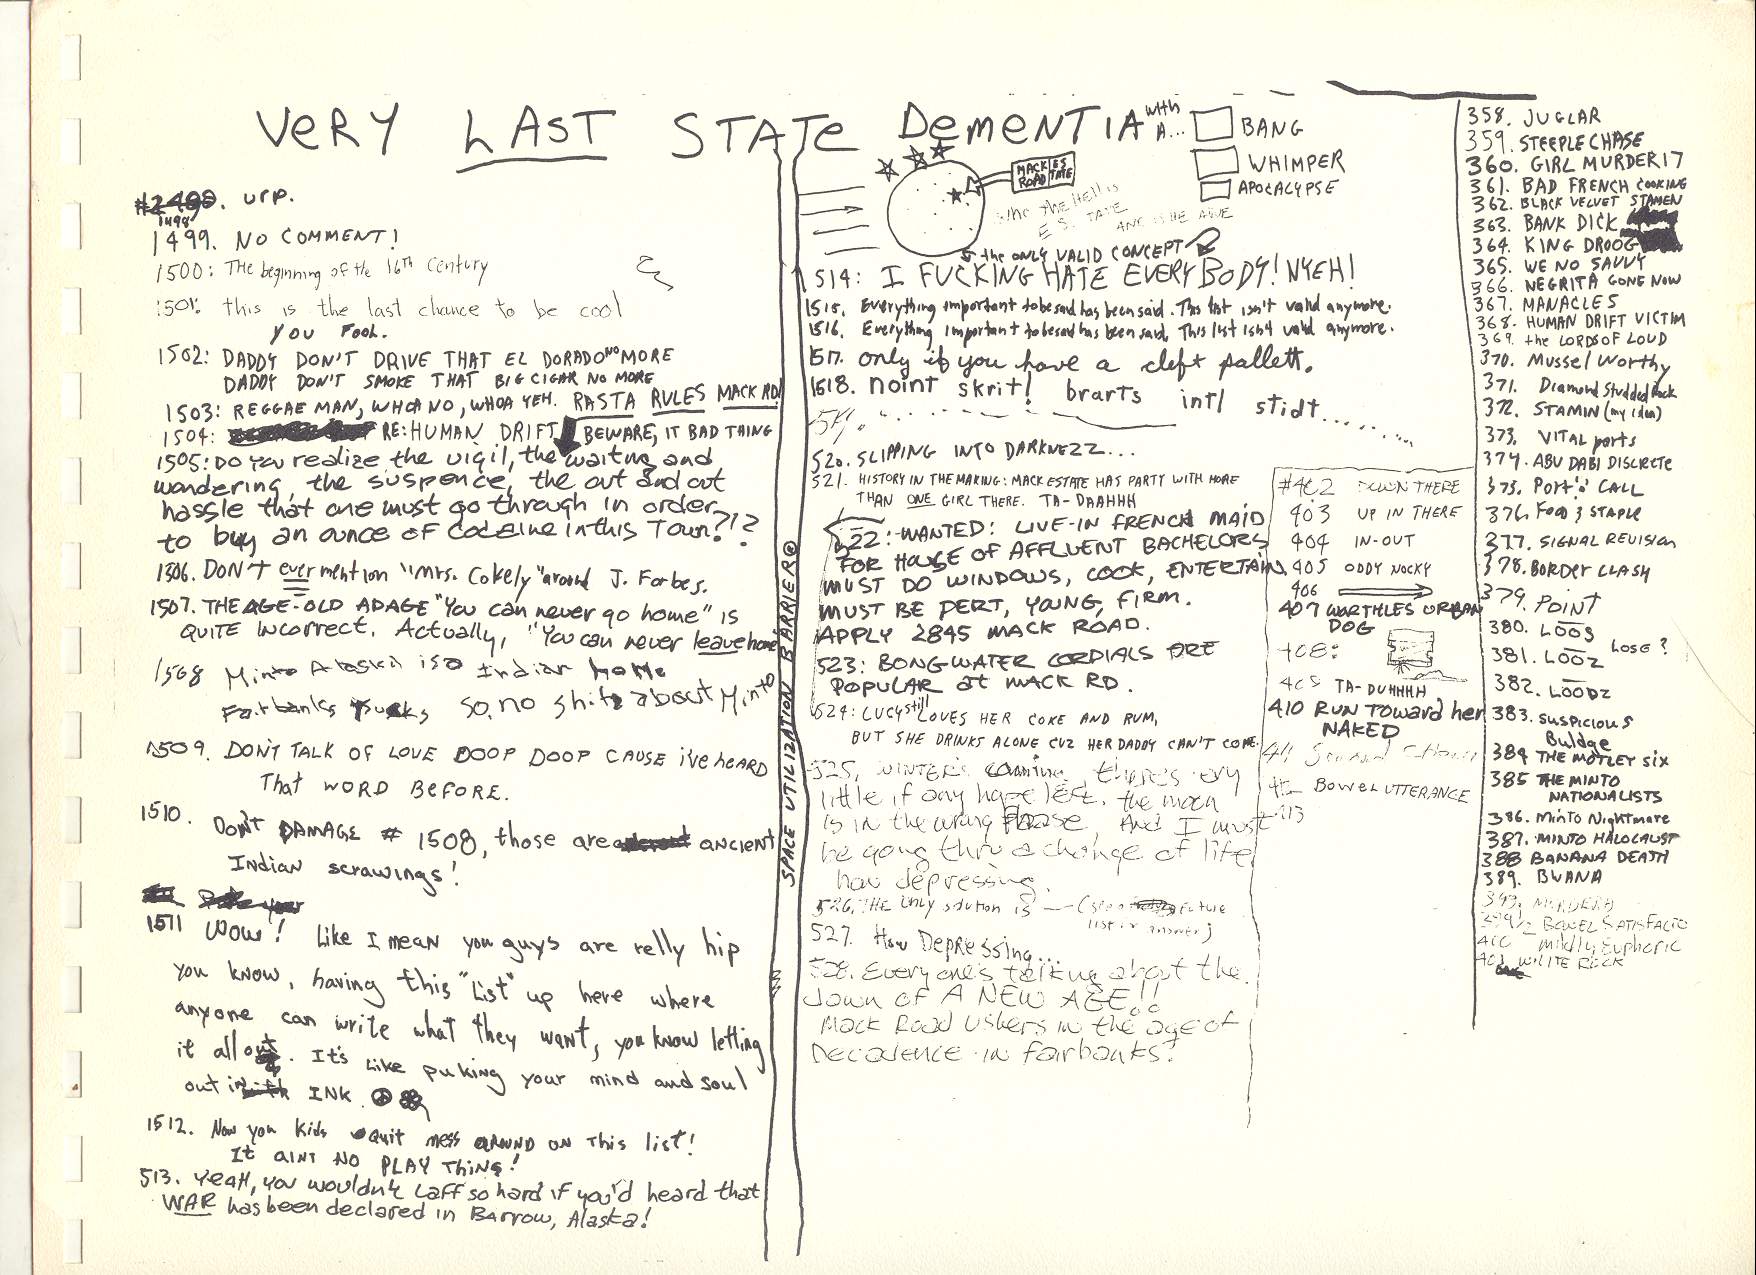 VERY LAST STATE DEMENTIA with A...
BANG
WHIMPER
APOCALYPSE
MACK ES
ROAD TATE
Who the Hell is
E.S. TATE
AND IS HE ALIVE
the ONLY VALID CONCEPT
#2488. urp.
1498
1499. NO COMMENT!
1500: The beginning of the 16th Century
1501: this is the last chance to be cool
YOU FOOL.
1502: DADDY DON'T DRIVE THAT EL DORADO NO MORE
DADDY DON'T SMOKE THAT BIG CIGAR NO MORE
1503: REGGAE MAN, WHOA NO, WHOA YEH. RASTA RULES MACK RD
1504: RE: HUMAN DRIFT BEWARE, IT BAD THING
1505: DO YOU realize the vigil, the waiting and
wondering, the suspence, the out and out
hassle that one must go through in order
to buy an ounce of cocaine in this Town?!?
1506. DON'T ever mention "Mrs. Cokely" around J. Forbes.
1507. THE AGE-OLD ADAGE "You can never go home" is
QUITE Incorrect. Actually, "You can never leave home"
1508 Minto Alaska is a Indian home
Fairbanks sucks so, no shit about Minto
1509. DON'T TALK OF LOVE DOOP DOOP CAUSE i've HEARD
That WORD BEFORE.
1510. DON'T DAMAGE # 1508, those are ancient
Indian scrawings!
1511 Wow! Like I mean you guys are relly hip
you know, having this "List" up here where
anyone can write what they want, you know letting
it all out. It's like puking your mind and soul
out in INK.
1512. Now you kids quit mess around on this list!
It AINT NO PLAY THING!
513. YEAH, you wouldn't Laff so hard if you'd heard that
WAR has been declared in Barrow, Alaska!
SPACE UTILIZATION BARRIER®
514: I FUCKING HATE EVERYBODY! NYEH!
1515. Everything important to be said has been said. This list isn't valid anymore.
1516. Everything important to be said has been said, This list isn't valid anymore.
1517. only if you have a cleft pallett.
1518. noint skrit! brarts intl stidt.....
519.
520. SLIPPING INTO DARKNEZZ...
521. HISTORY IN THE MAKING: MACK ESTATE HAS PARTY WITH MORE
THAN ONE GIRL THERE. TA-DAAHHH
522: WANTED: LIVE-IN FRENCH MAID
FOR HOUSE OF AFFLUENT BACHELORS
MUST DO WINDOWS, COOK, ENTERTAIN.
MUST BE PERT, YOUNG, FIRM.
APPLY 2845 MACK ROAD.
523: BONGWATER CORDIALS ARE
POPULAR at MACK RD.
524: LUCY still LOVES HER COKE AND RUM,
BUT SHE DRINKS ALONE CUZ HER DADDY CAN'T COME.
525. WINTER'S coming, there's very
little if any hope left. the moon
is in the wrong Phase, And I must
be going thru a change of life
how depressing.
526. THE only solution is — (see Future
list for answer)
527. How Depressing...
528. Everyone's talking about the
dawn of A NEW AGE!!
Mack Road Ushers in the age of
Decadence in Fairbanks!
#402 DOWN THERE
403 UP IN THERE
404 IN-OUT
405 ODDY NOCKY
406
407 WORTHLES URBAN
DOG
408:
409 TA-DUHHHH
410 RUN Toward her
NAKED
411
412 BOWEL UTTERANCE
413
358. JUGLAR
359. STEEPLE CHASE
360. GIRL MURDER 17
361. BAD FRENCH COOKING
362. BLACK VELVET STAMEN
363. BANK DICK
364. KING DROOG
365. WE NO SAVVY
366. NEGRITA GONE NOW
367. MANACLES
368. HUMAN DRIFT VICTIM
369. the LORDS OF LOUD
370. Mussel Worthy
371. Diamond Studded Rock
372. STAMIN (my idea)
373. VITAL ports
374. ABU DABI DISCRETE
375. Port 'o' CALL
376. Food & STAPLE
377. SIGNAL REVISION
378. BORDER CLASH
379. POINT
380. LOOS
381. LOOZ LOSE?
382. LOODZ
383. Suspicious
Buldge
384 THE MOTLEY SIX
385 THE MINTO
NATIONALISTS
386. Minto Nightmare
387. MINTO HOLOCAUST
388 BANANA DEATH
389. BWANA
399½ BOWEL SATISFACTIO
400 — Mildly Euphoric
401 WHITE ROCK